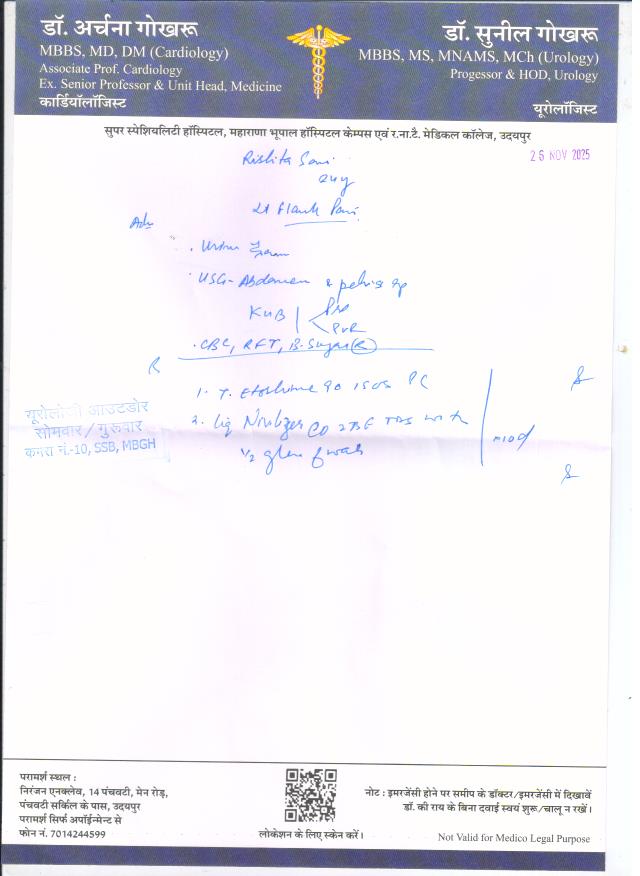 डॉ. अर्चना गोखरू
MBBS, MD, DM (Cardiology)
Associate Prof. Cardiology
Ex. Senior Professor & Unit Head, Medicine
कार्डियॉलॉजिस्ट
डॉ. सुनील गोखरू
MBBS, MS, MNAMS, MCh (Urology)
Progessor & HOD, Urology
यूरोलॉजिस्ट
सुपर स्पेशियलिटी हॉस्पिटल, महाराणा भूपाल हॉस्पिटल केम्पस एवं र.ना.टै. मेडिकल कॉलेज, उदयपुर
26 NOV 2025
24y
Flank Pain
Adv
. Urine
. USG-Abdomen & pelvis
KUB
PVR
. CBC, RFT, B. Sugar (R)
1. T. 90 PC
2. Liq TDS with
1/2 glass of water
यूरोलोजी आउटडोर
सोमवार / गुरूवार
कमरा नं.-10, SSB, MBGH
परामर्श स्थल :
निरंजन एनक्लेव, 14 पंचवटी, मेन रोड़,
पंचवटी सर्किल के पास, उदयपुर
परामर्श सिर्फ अपॉईन्मेन्ट से
फोन नं. 7014244599
लोकेशन के लिए स्केन करें।
नोट : इमरजेंसी होने पर समीप के डॉक्टर/इमरजेंसी में दिखावें
डॉ. की राय के बिना दवाई स्वयं शुरू/चालू न रखें।
Not Valid for Medico Legal Purpose